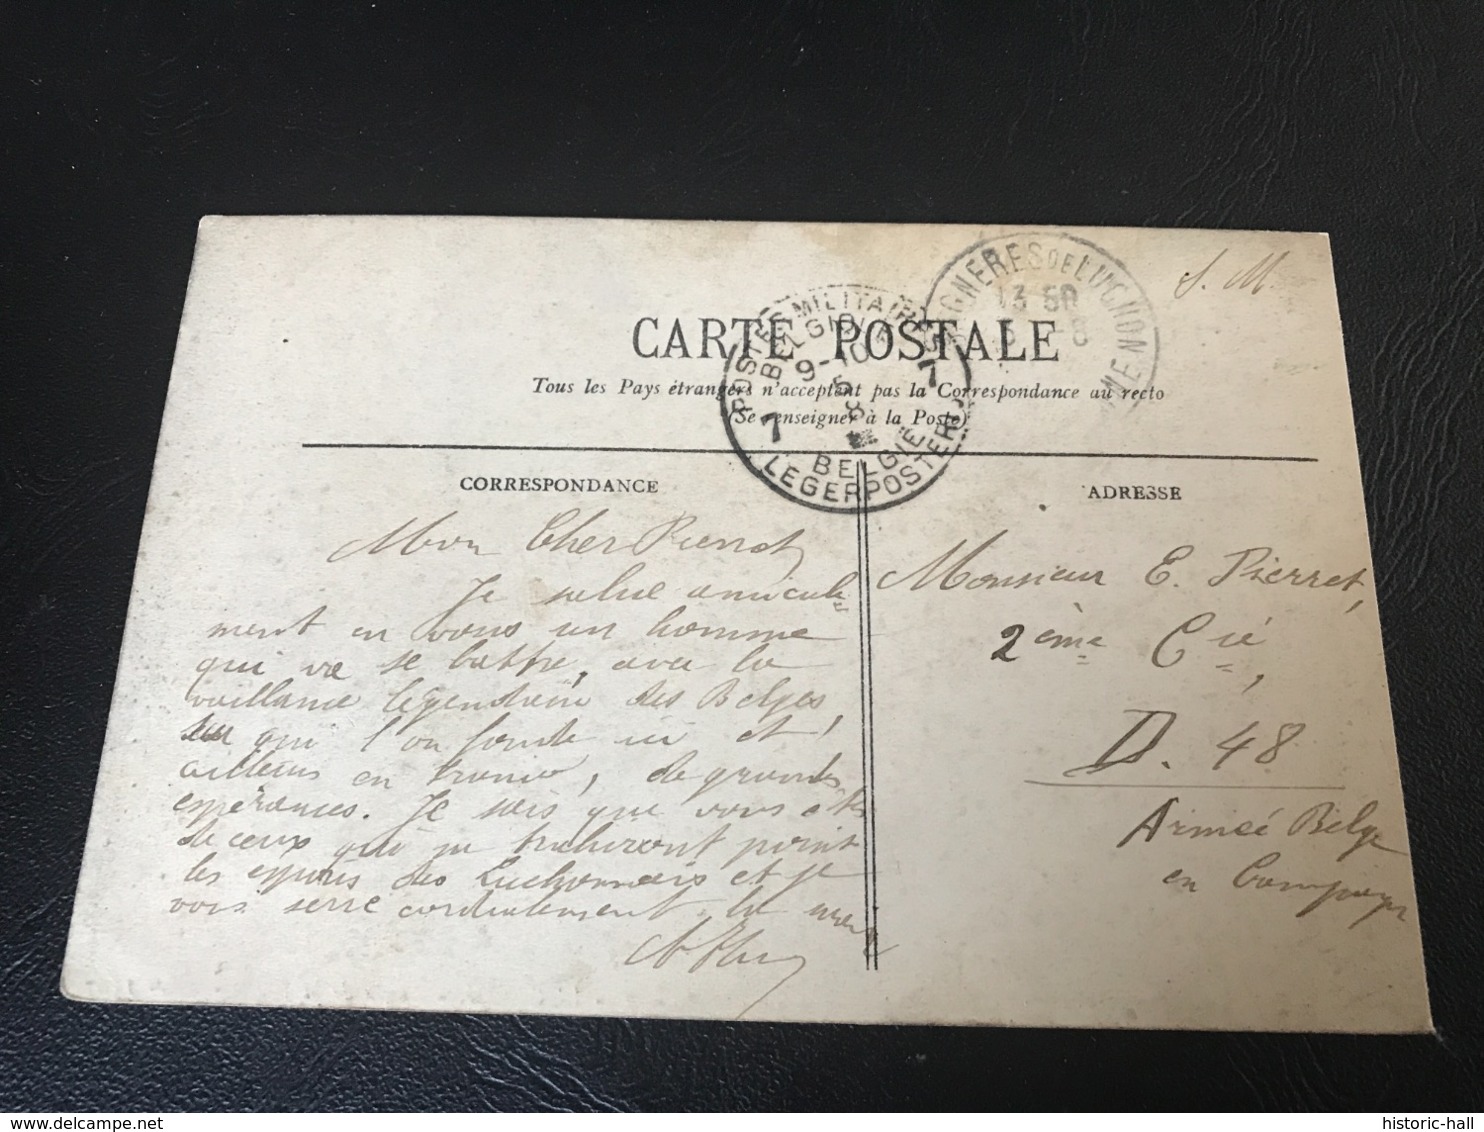 S. M.
BAGNERES DE LUCHON
13 50
8
POSTES MILITAIRES
BELGIQUE
9-10
7 7
5
8
BELGIE
LEGERPOSTERIJ
CARTE POSTALE
Tous les Pays étrangers n'acceptent pas la Correspondance au recto
(Se renseigner à la Poste)
CORRESPONDANCE
Mon Cher Pierret
Je salue amicale
ment en vous un homme
qui va se battre, avec la
vaillance légendaire des Belges,
sur qui l'on fonde ici et
ailleurs en France, de grandes
espérances. Je sais que vous êtes
de ceux qui ne tricheront point
les espoirs des Luchonnais et je
vous serre cordialement la main
ADRESSE
Monsieur E. Pierret,
2ème Cié,
D. 48
Armeé Belge
en Campagne
historic-hall